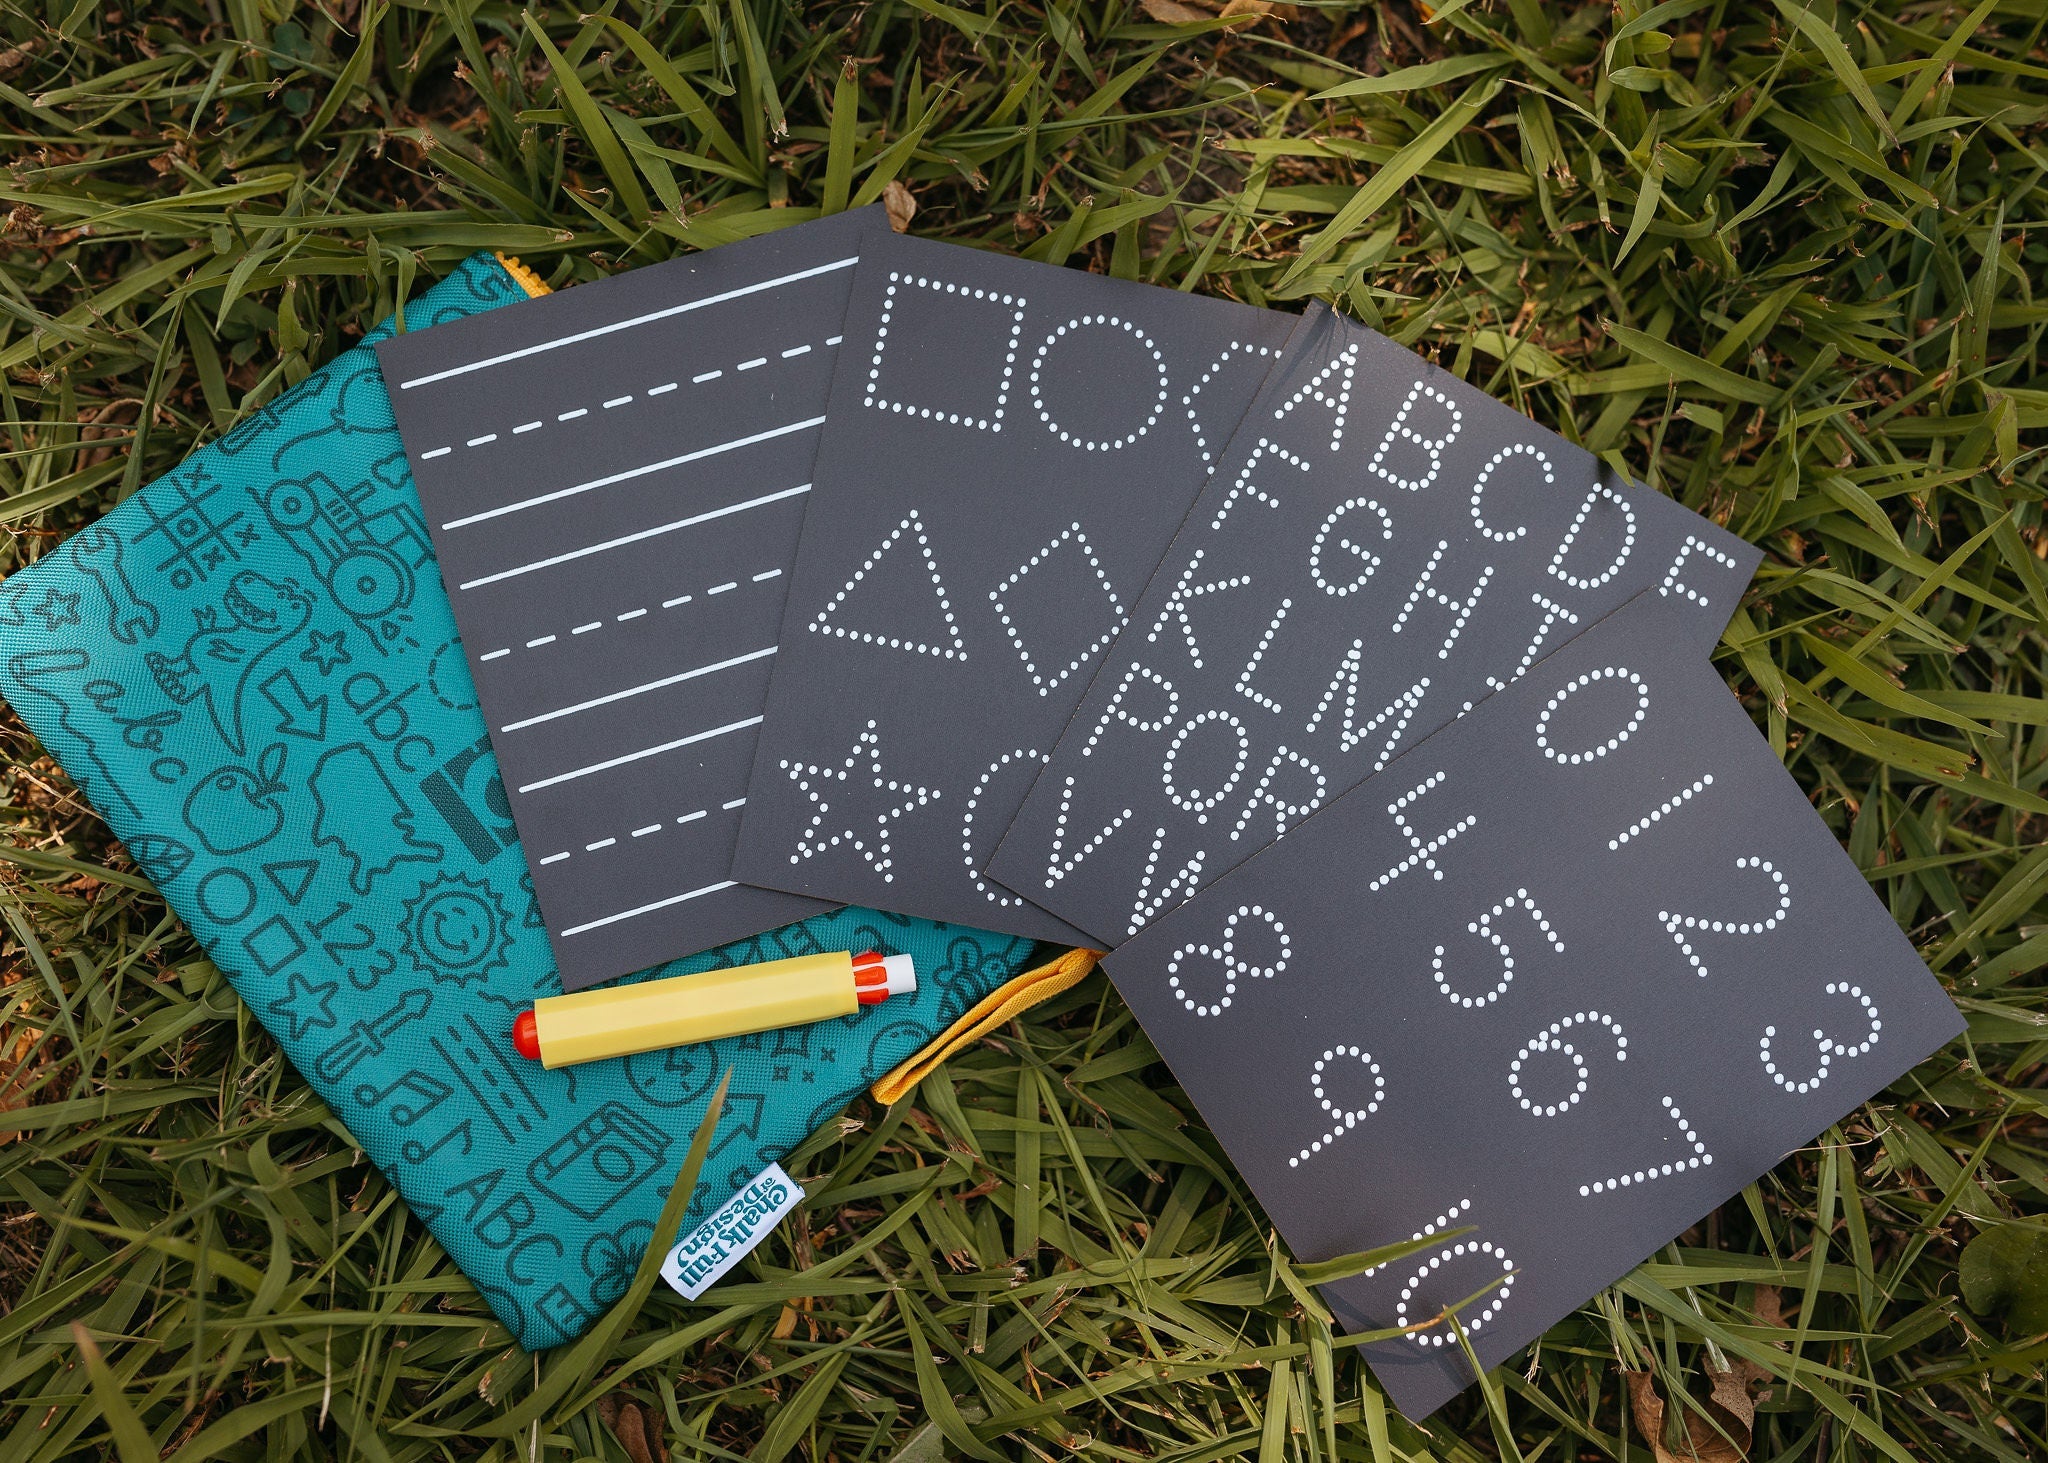 abc
abc
123
ABC
Chalk Full
of Design
A B C D
F G H
K L M
P Q R
V W
0 1 2 3
4 5 6 7
8 9 10